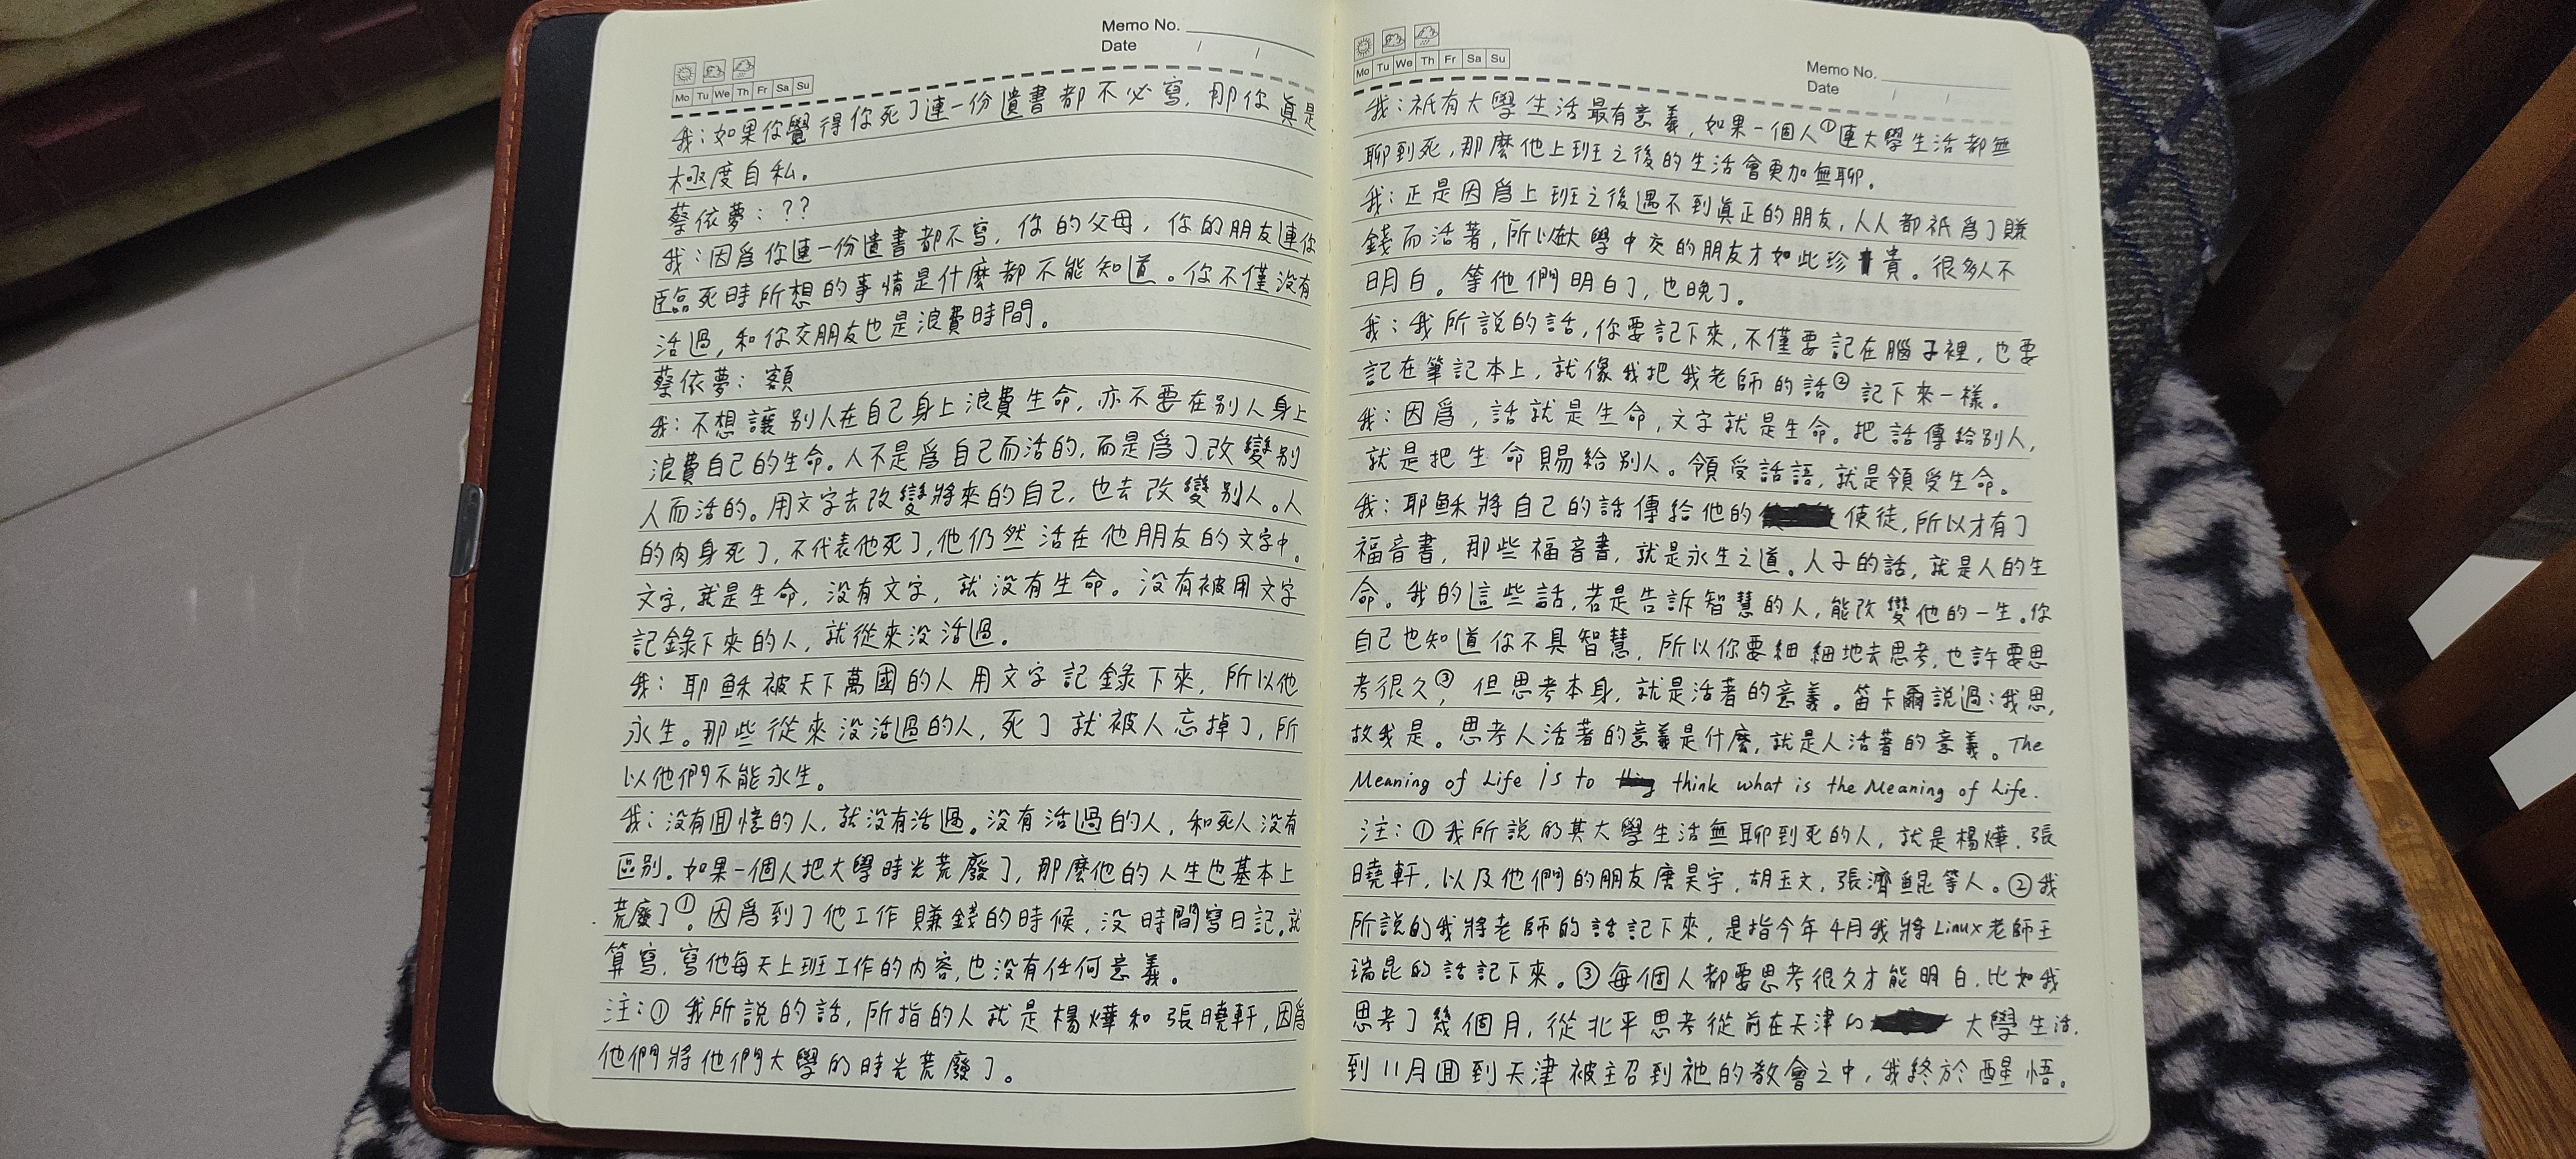 Memo No.
Date / /
Mo Tu We Th Fr Sa Su
我：如果你覺得你死了連一份遺書都不必寫，那你真是
極度自私。
蔡依夢：??
我：因爲你連一份遺書都不寫，你的父母，你的朋友連你
臨死時所想的事情是什麼都不能知道。你不僅没有
活過，和你交朋友也是浪費時間。
蔡依夢：額
我：不想讓别人在自己身上浪費生命，亦不要在别人身上
浪費自己的生命。人不是爲自己而活的，而是爲了改變别
人而活的。用文字去改變將來的自己，也去改變别人。人
的肉身死了，不代表他死了，他仍然活在他朋友的文字中。
文字，就是生命，没有文字，就没有生命。没有被用文字
記錄下來的人，就從來没活過。
我：耶穌被天下萬國的人用文字記錄下來，所以他
永生。那些從來没活過的人，死了就被人忘掉了，所
以他們不能永生。
我：没有回憶的人，就没有活過。没有活過的人，和死人没有
區别。如果一個人把大學時光荒廢了，那麼他的人生也基本上
荒廢了①。因爲到了他工作賺錢的時候，没時間寫日記。就
算寫，寫他每天上班工作的内容，也没有任何意義。
注：①我所說的話，所指的人就是楊燁和張曉軒，因爲
他們將他們大學的時光荒廢了。
Memo No.
Date / /
Mo Tu We Th Fr Sa Su
我：祇有大學生活最有意義，如果一個人①連大學生活都無
聊到死，那麼他上班之後的生活會更加無聊。
我：正是因爲上班之後遇不到真正的朋友，人人都祇爲了賺
錢而活著，所以在大學中交的朋友才如此珍貴。很多人不
明白。等他們明白了，也晚了。
我：我所說的話，你要記下來，不僅要記在腦子裡，也要
記在筆記本上，就像我把我老師的話②記下來一樣。
我：因爲，話就是生命，文字就是生命。把話傳給别人，
就是把生命賜給别人。領受話語，就是領受生命。
我：耶穌將自己的話傳給他的使徒，所以才有了
福音書，那些福音書，就是永生之道。人子的話，就是人的生
命。我的這些話，若是告訴智慧的人，能改變他的一生。你
自己也知道你不具智慧，所以你要細細地去思考，也許要思
考很久③，但思考本身，就是活著的意義。笛卡爾說過：我思，
故我是。思考人活著的意義是什麼，就是人活著的意義。The
Meaning of Life is to think what is the Meaning of Life.
注：①我所說的其大學生活無聊到死的人，就是楊燁，張
曉軒，以及他們的朋友唐昊宇，胡玉文，張濟鯤等人。②我
所說的我將老師的話記下來，是指今年4月我將Linux老師王
瑞昆的話記下來。③每個人都要思考很久才能明白，比如我
思考了幾個月，從北平思考從前在天津的大學生活，
到11月回到天津被主召到祂的教會之中，我終於醒悟。